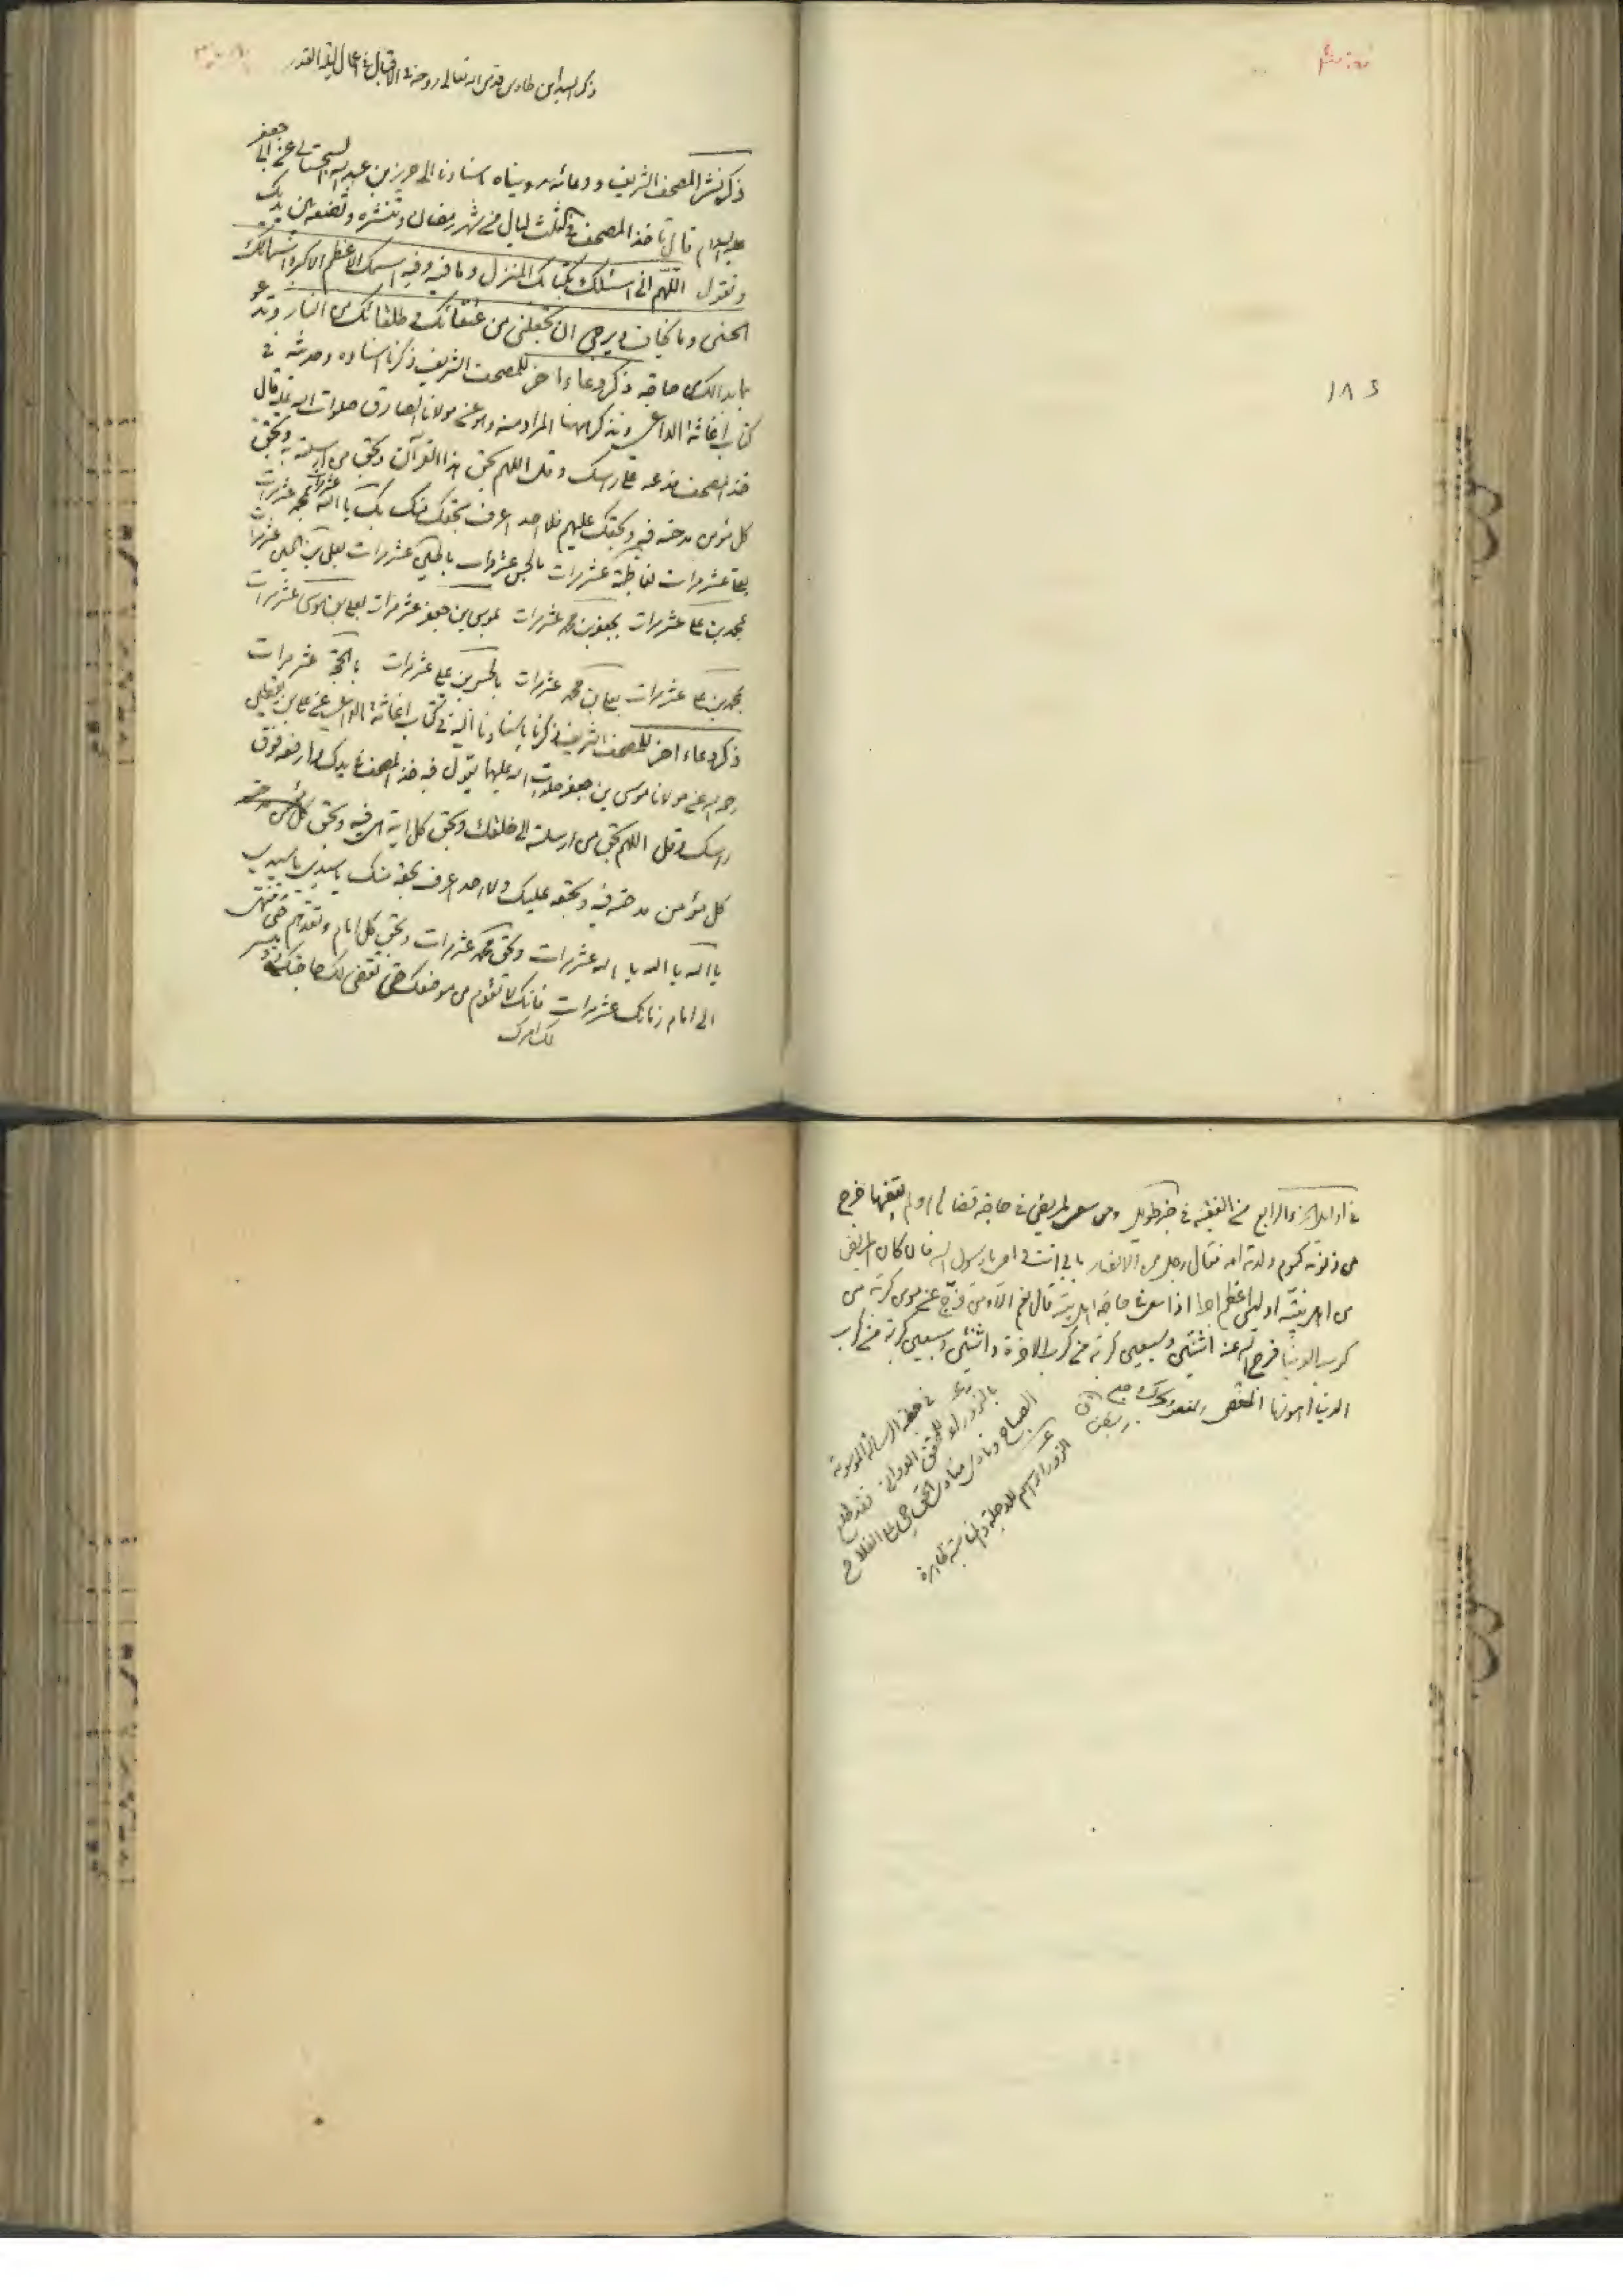 ذكر السيد ابن طاوس قدس الله تعالى روحه في الاقبال في اعمال ليلة القدر
ذكر نشر المصحف الشريف ودعائه رويناه باسنادنا الى حريز بن عبد الله السجستاني عن ابي جعفر
عليه السلام قال تاخذ المصحف في ثلث ليال من شهر رمضان وتنشره وتضعه بين يديك
وتقول اللهم اني اسئلك بكتابك المنزل وما فيه وفيه اسمك الاعظم الاكبر واسمائك
الحسنى وما يخاف ويرجى ان تجعلني من عتقائك وطلقائك من النار وتدعو
بما بدا لك من حاجة ذكر دعاء اخر للمصحف الشريف ذكرنا اسناده وحديثه في
كتاب اغاثة الداعي ونذكر ههنا المراد منه وهو عن مولانا الصادق صلوات الله عليه قال
خذ المصحف فدعه على راسك وقل اللهم بحق هذا القرآن وبحق من ارسلته به وبحق
كل مؤمن مدحته فيه وبحقك عليهم فلا احد اعرف بحقك منك بك يا الله عشر مرات بمحمد عشر مرات
بعلي عشر مرات بفاطمة عشر مرات بالحسن عشر مرات بالحسين عشر مرات بعلي بن الحسين عشر مرات
بمحمد بن علي عشر مرات بجعفر بن محمد عشر مرات بموسى بن جعفر عشر مرات بعلي بن موسى عشر مرات
بمحمد بن علي عشر مرات بعلي بن محمد عشر مرات بالحسن بن علي عشر مرات بالحجة عشر مرات
ذكر دعاء اخر للمصحف الشريف ذكرنا باسنادنا اليه في كتاب اغاثة الداعي عن علي بن يقطين
رحمه الله عن مولانا موسى بن جعفر صلوات الله عليهما يقول فيه خذ المصحف في يدك وارفعه فوق
راسك وقل اللهم بحق من ارسلته الى خلقك وبحق كل اية هي فيه وبحق كل مؤمن مدحته
كل مؤمن مدحته فيه وبحقه عليك ولا احد اعرف بحقه منك يا سيدي يا سيدي
يا الله يا الله يا الله عشر مرات وبحق محمد عشر مرات وبحق كل امام وتعدهم حتى تنتهي
الى امام زمانك عشر مرات فانك لا تقوم من موضعك حتى تقضى لك حاجتك وتيسر
لك امرك
١٨٤
في اوايل الجزء الرابع من الفقيه في خبر طويل ومن سعى لمريض في حاجة قضاها او لم يقضها خرج
من ذنوبه كيوم ولدته امه فقال رجل من الانصار بابي انت وامي يا رسول الله فان كان المريض
من اهل بيته او ليس اعظم اجرا اذا سعى في حاجة اهل بيته قال نعم الا ومن فرج عن مومن كربة من
كرب الدنيا فرج الله عنه اثنتين وسبعين كربة من كرب الاخرة واثنتين وسبعين كربة من كرب
الدنيا اهونها المغص
في خطبة الرسالة الموسومة
بالزوراء للمحقق الدواني فقد طلع
الصباح ونادى منادي الحق حي على الفلاح
الزوراء اسم للدجلة والمناسبة ظاهرة